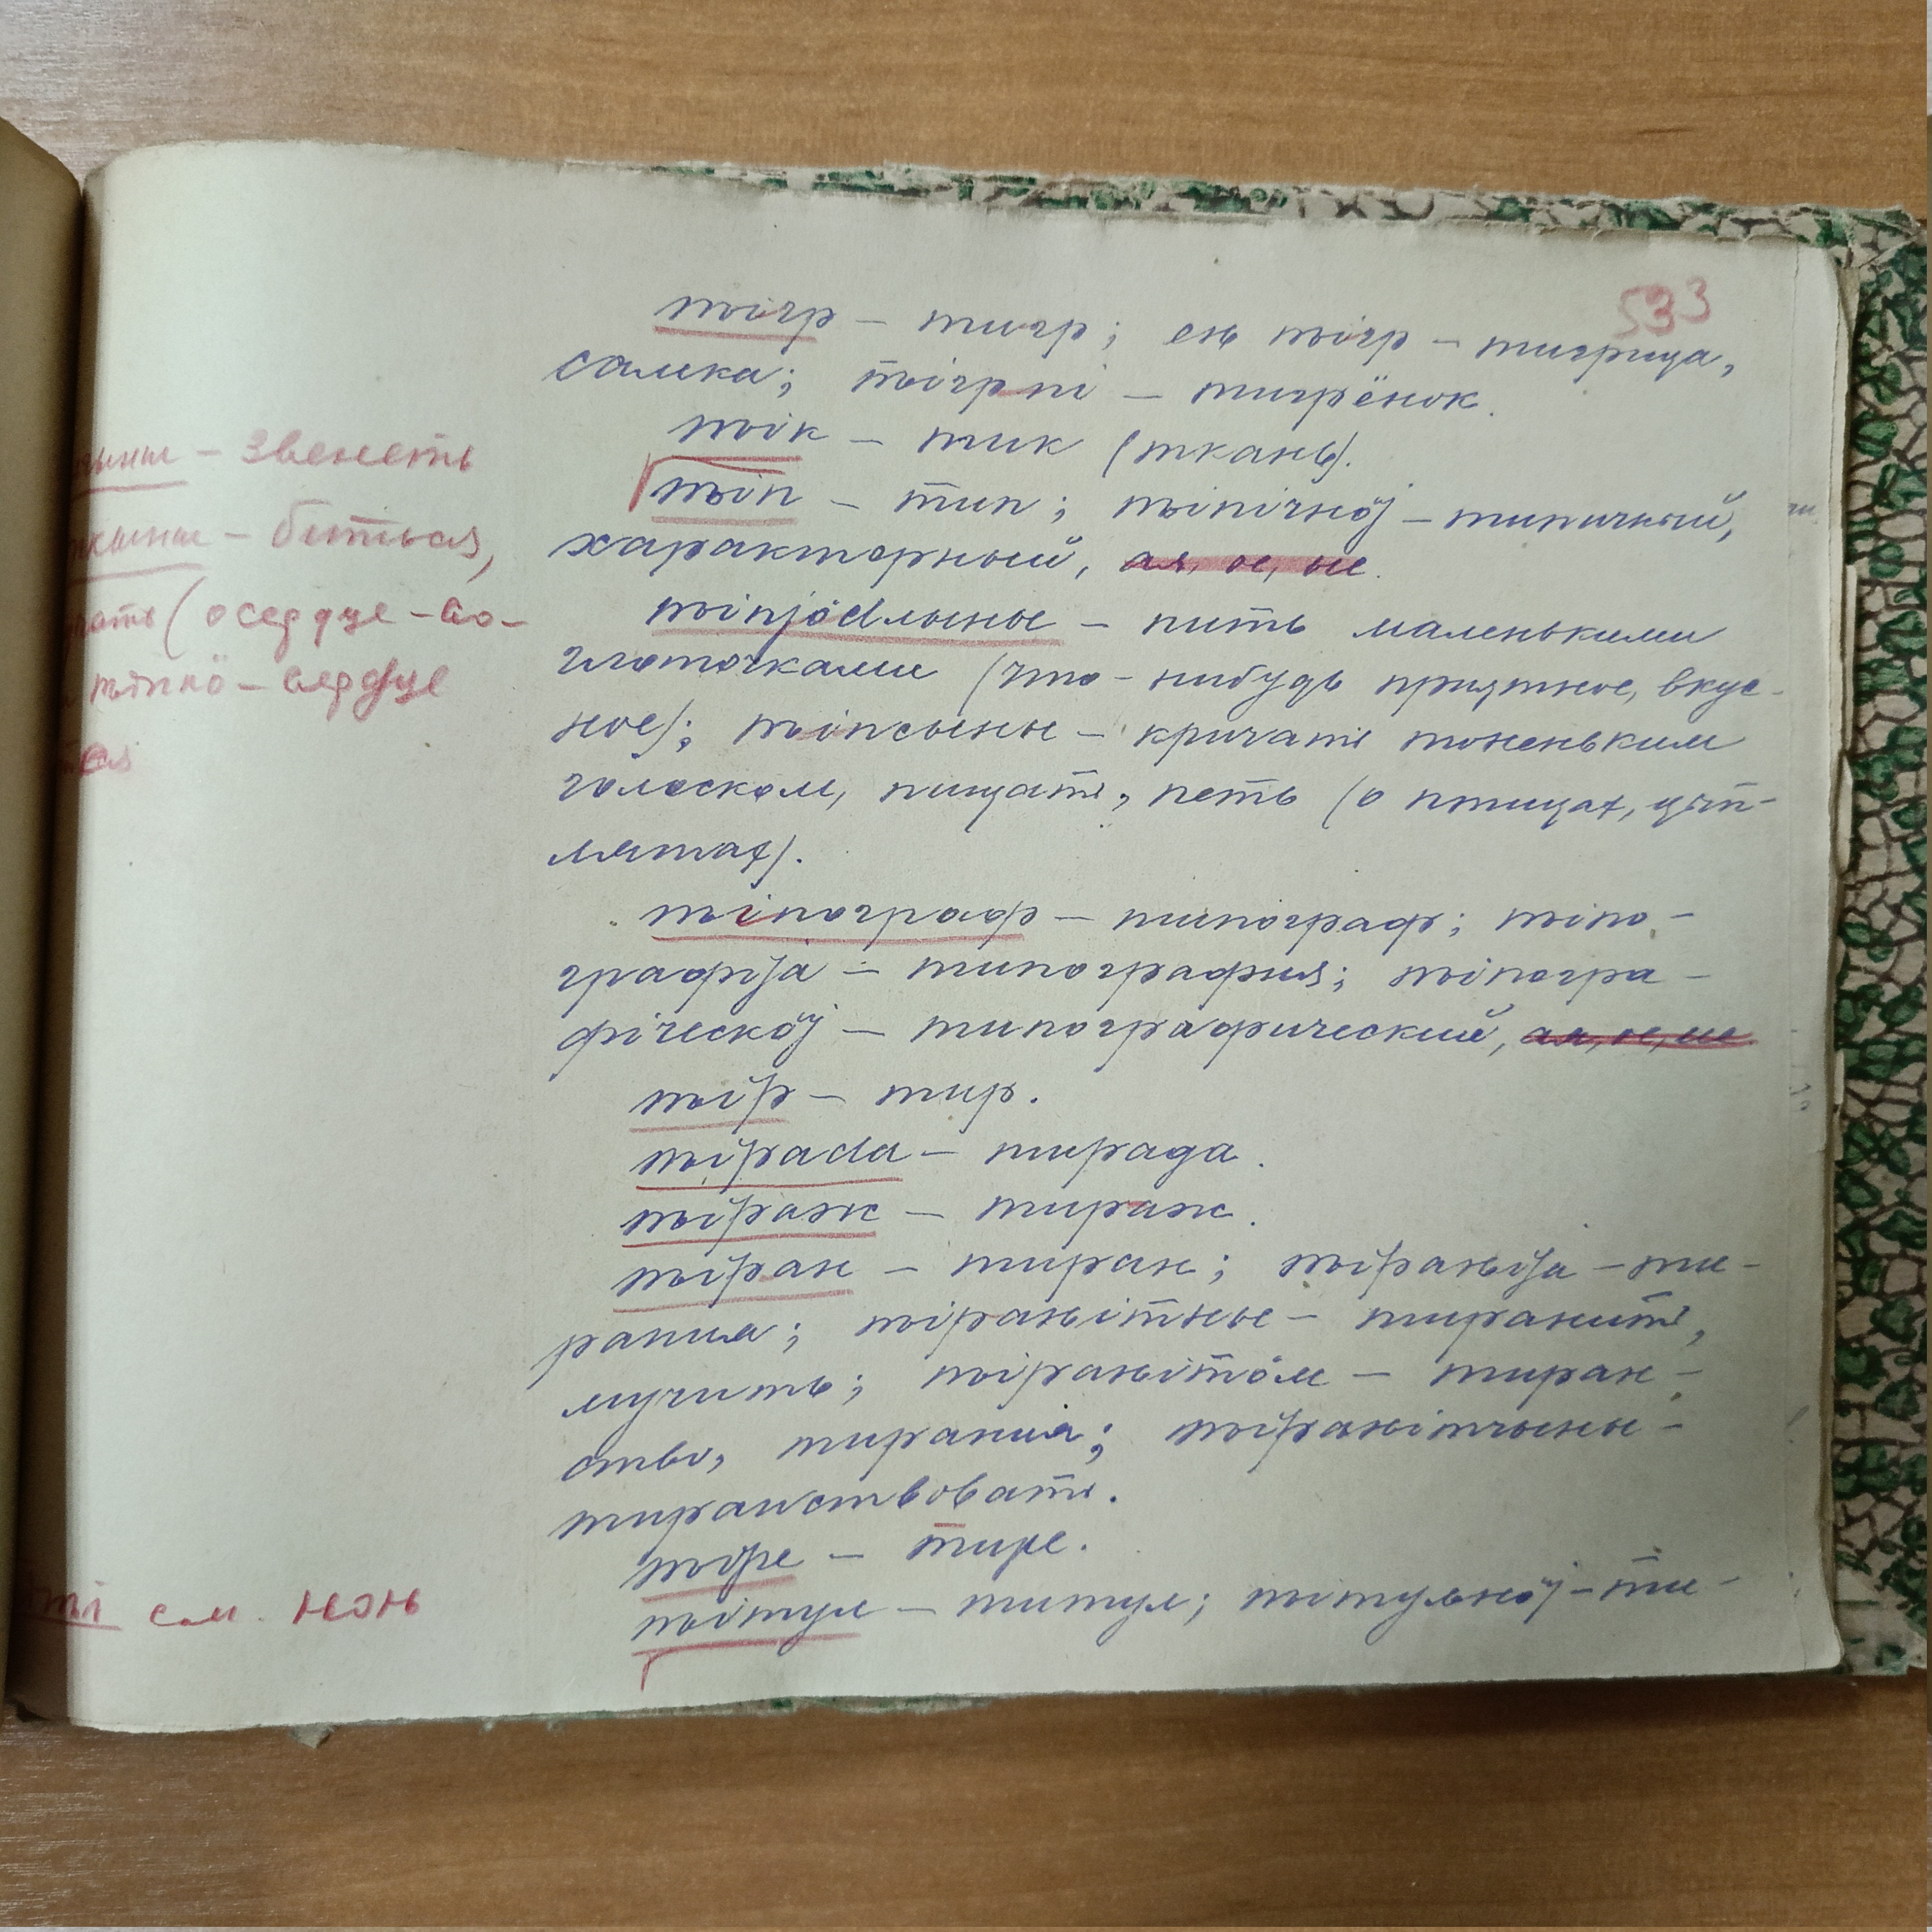 533
тігр – тигр; ень тігр – тигрица,
самка; тігрпі – тигрёнок.
тік – тик (ткань).
тіп – тип; тіпічнӧј – типичный,
характерный, ая, ое, ые.
тіпјӧdлыны – пить маленькими
глоточками (что-нибудь приятное, вкус-
ное); тіпсыны – кричать тоненьким
голоском, пищать, петь (о птицах, цып-
лятах).
тіпограф – типограф; тіпо-
графіја – типография; тіпогра-
фіческӧј – типографический, ая, ое, ие.
тір – тир.
тіраdа – тирада.
тіраж – тираж.
тіран – тиран; тіраніја – ти-
рания; тіранітны – тиранить,
мучить; тіранітӧм – тиран-
ство, тирания; тіранітчыны –
тиранствовать.
тіре – тире.
тітул – титул; тітульнӧј – ти-
– звенеть
– биться,
(о сердце – во-
тіпкӧ – сердце
см. нэнь